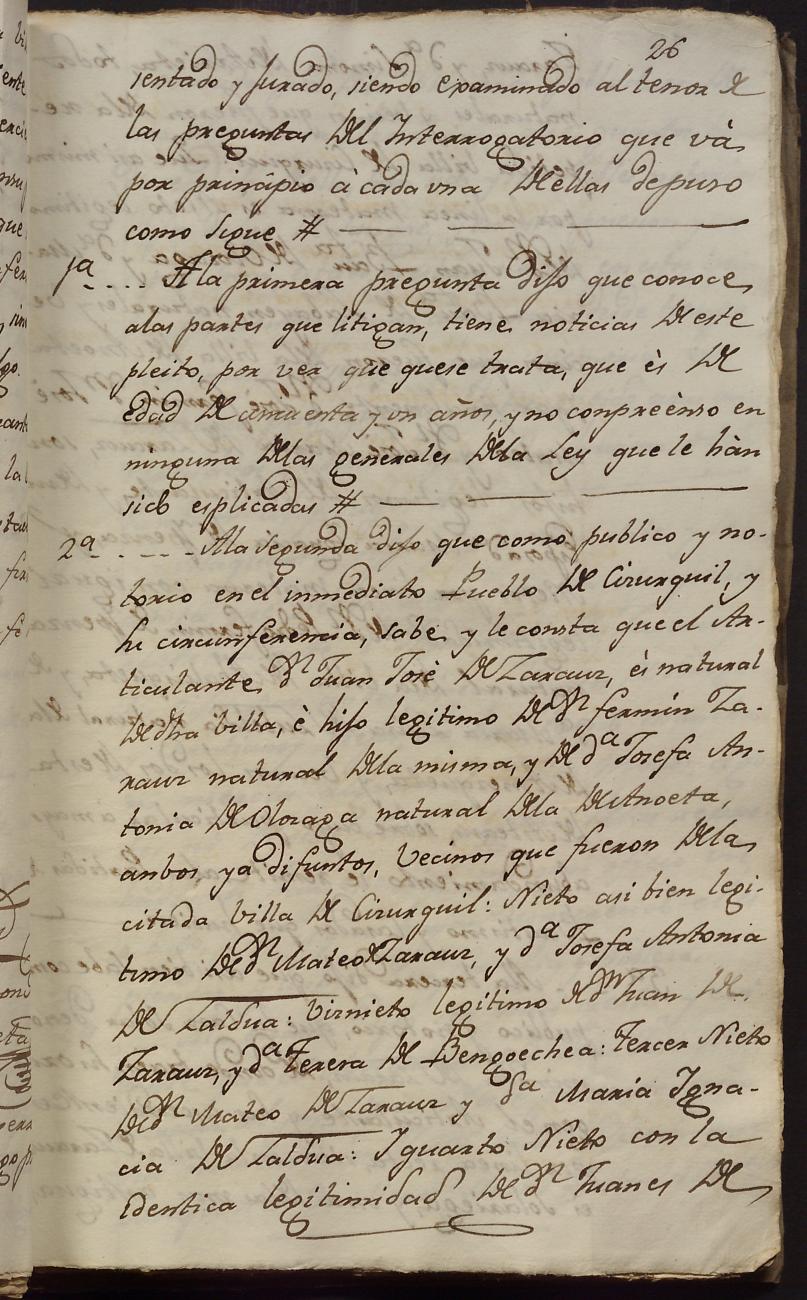 26
sentado y jurado, siendo examinado al tenor de
las preguntas del Interrogatorio que và
por principio à cada una de ellas depuso
como sigue #
1ª... A la primera pregunta dijo que conoce
alas partes que litigan, tiene noticias de este
pleito, por ver que quese trata, que ès de
edad de cinquenta y un años, y no conpreènso en
ninguna delas generales dela Ley que le hàn
sido esplicadas #
2ª... Ala segunda dijo que como publico y no-
torio en el inmediato Pueblo de Cizurquil, y
su circunferencia, sabe y le consta que el Ar-
ticulante Dn Juan Josè de Zarauz, ès natural
de dha villa, è hijo legitimo de Dn fermin Za-
rauz natural dela misma, y de da Josefa An-
tonia de Olozaga natural dela de Anoeta,
anbos ya difuntos, Vecinos que fueron dela
citada villa de Cizurquil: Nieto asi bien legi-
timo de dn Mateo de Zarauz, y da Josefa Antonia
de Zaldua: virnieto legitimo de dn Juan de
Zarauz, y da Teresa de Bengoechea: tercer Nieto
de dn Mateo de Zarauz y da Maria Igna-
cia de Zaldua: Y quarto Nieto con la
identica legitimidad de dn Juanes de